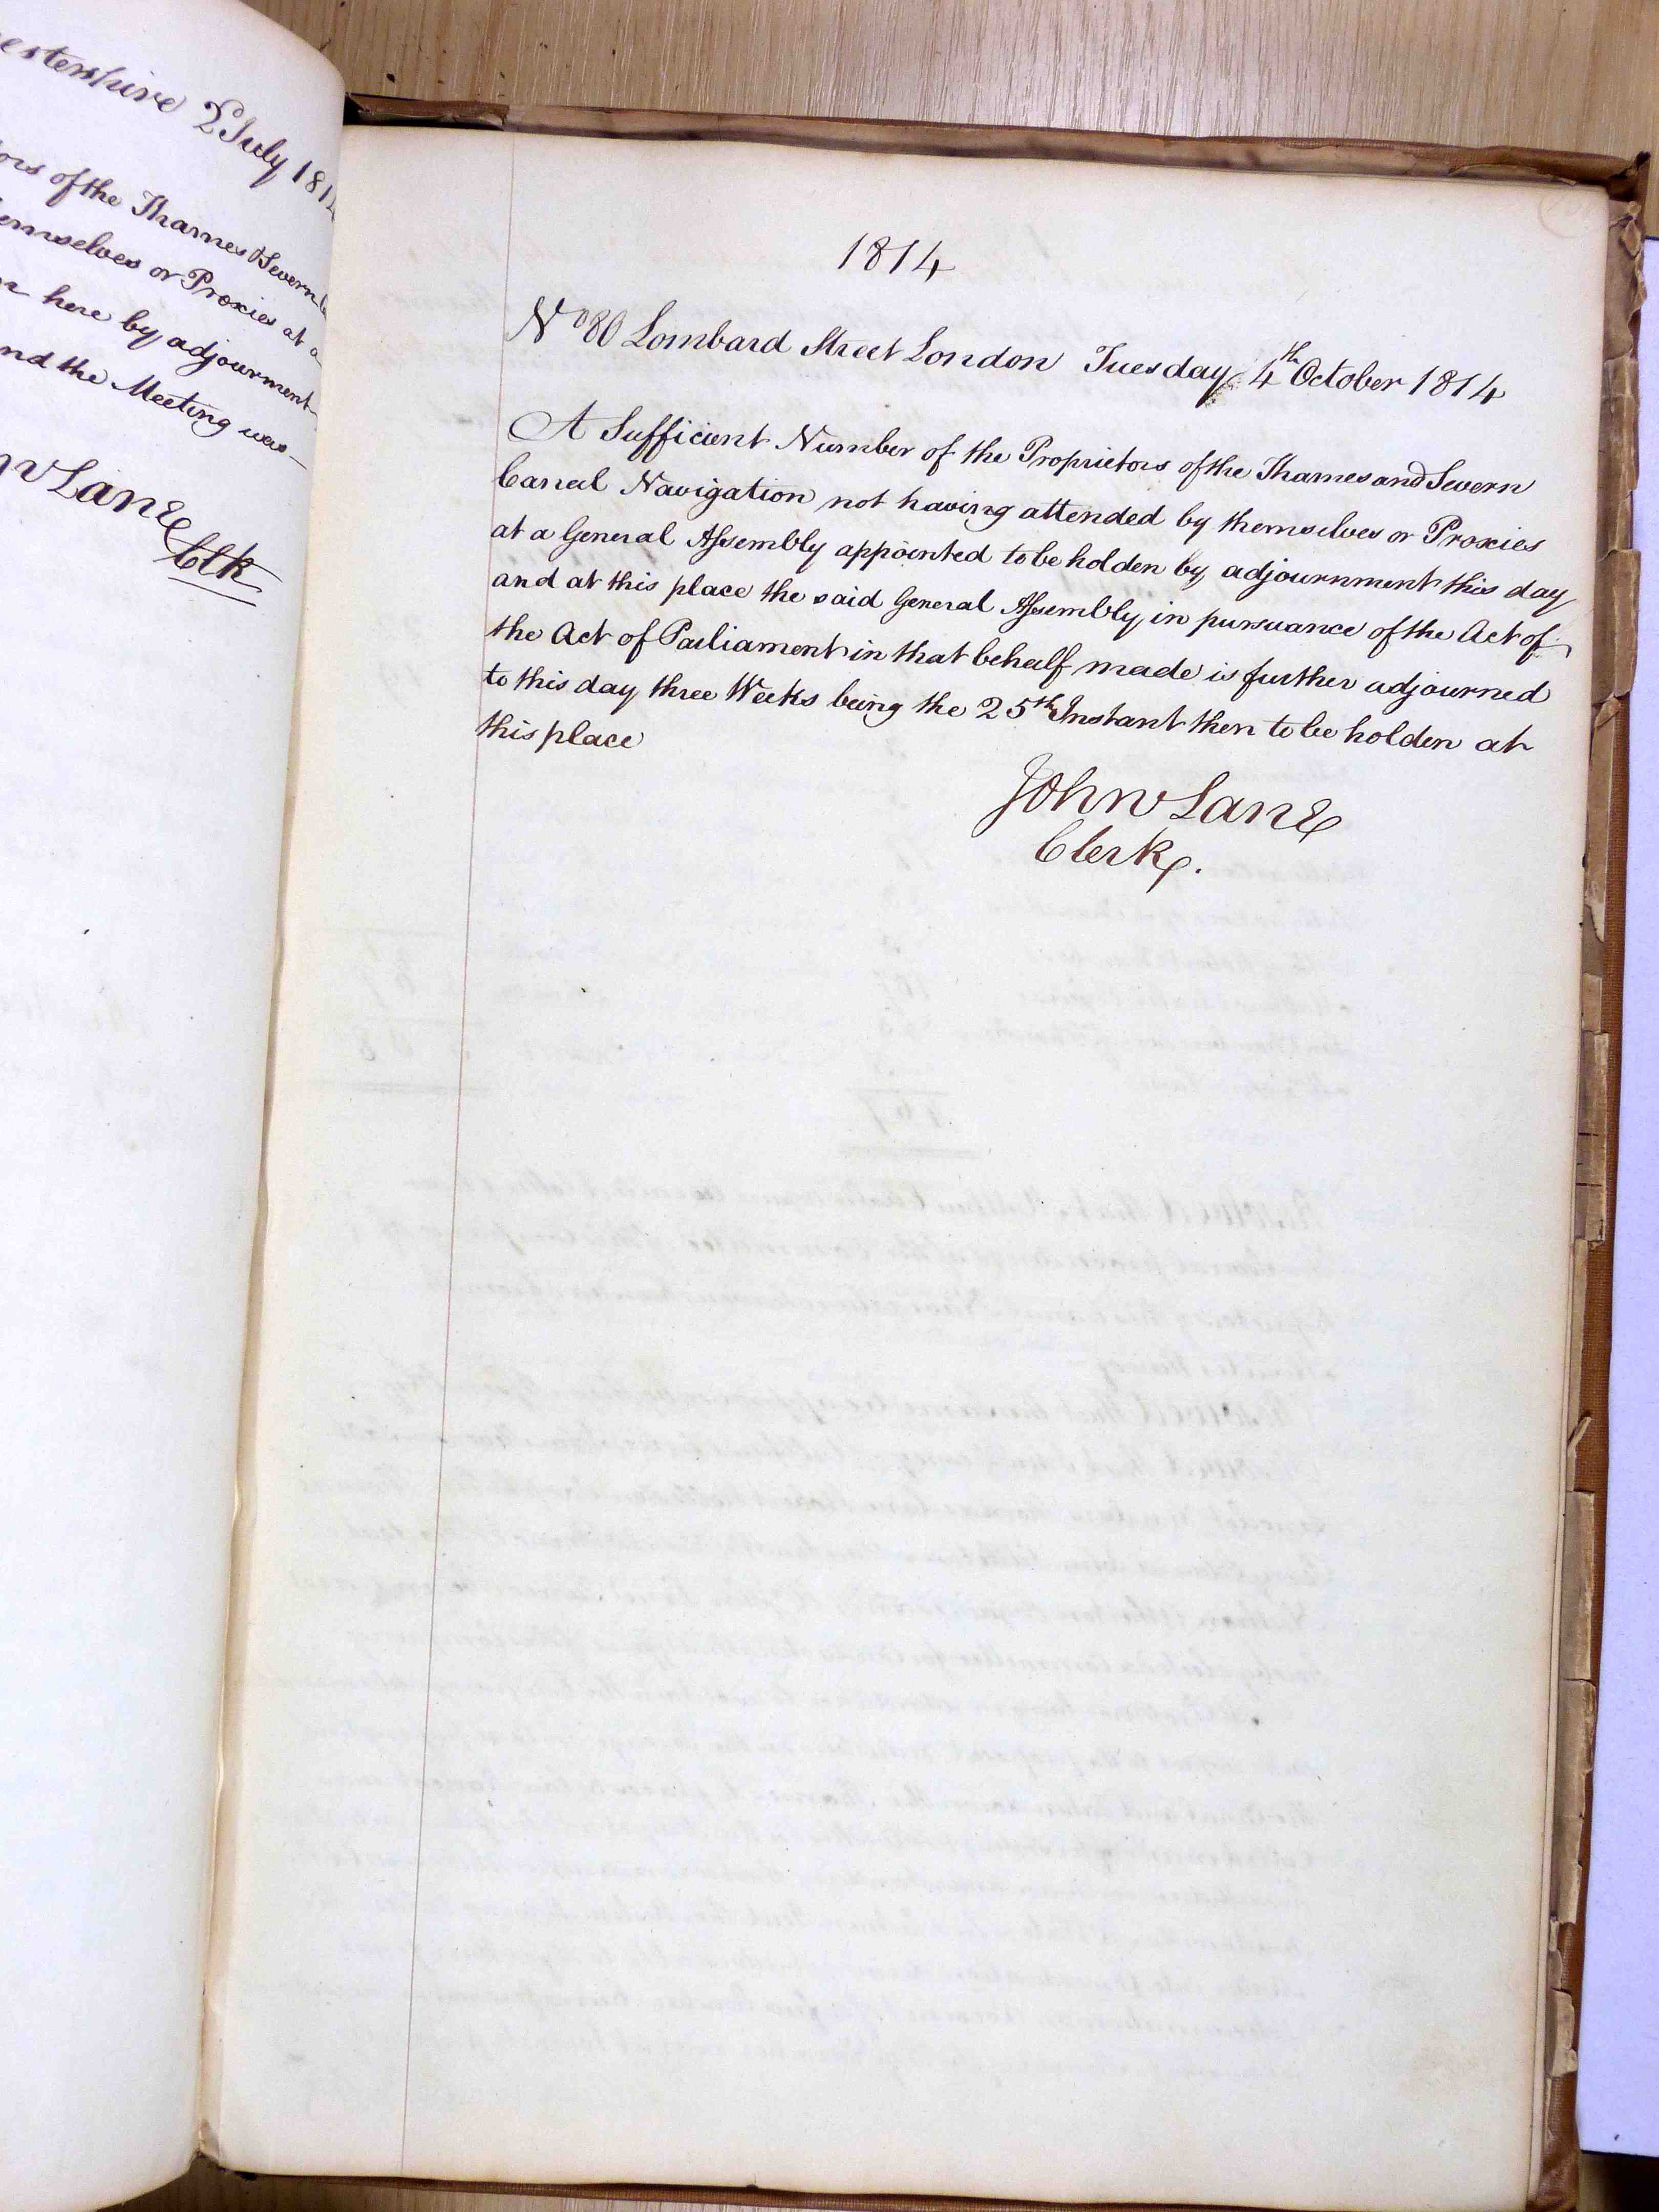 estershire 2d July 1814
ors of the Thames & Severn
emselves or Proxies at a
here by adjournment
nd the Meeting was
Lane
Clk
1814
No 80 Lombard Street London Tuesday 4th October 1814
A Sufficient Number of the Proprietors of the Thames and Severn
Canal Navigation not having attended by themselves or Proxies
at a General Assembly appointed to be holden by adjournment this day
and at this place the said General Assembly in pursuance of the Act of
the Act of Parliament in that behalf made is further adjourned
to this day three Weeks being the 25th Instant then to be holden at
this place
John Lane
Clerk.